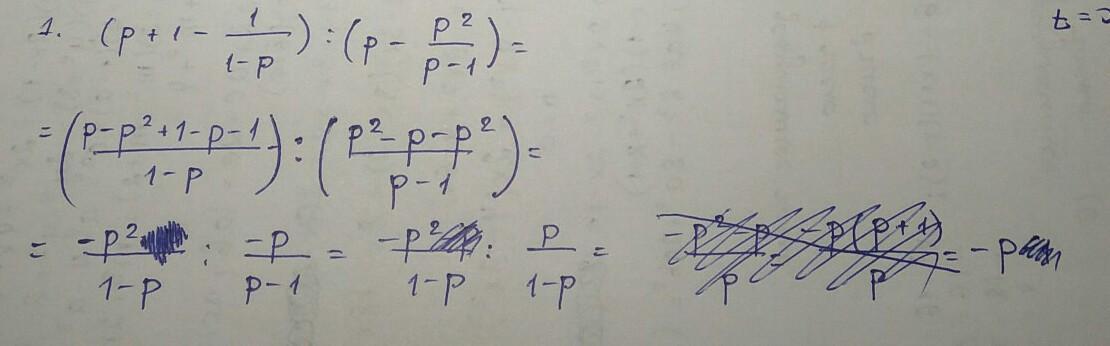 1. (p + 1 - \frac{1}{1-p}) : (p - \frac{p^2}{p-1}) =
= (\frac{p-p^2+1-p-1}{1-p}) : (\frac{p^2-p-p^2}{p-1}) =
= \frac{-p^2}{1-p} : \frac{-p}{p-1} = \frac{-p^2}{1-p} : \frac{p}{1-p} = = -p